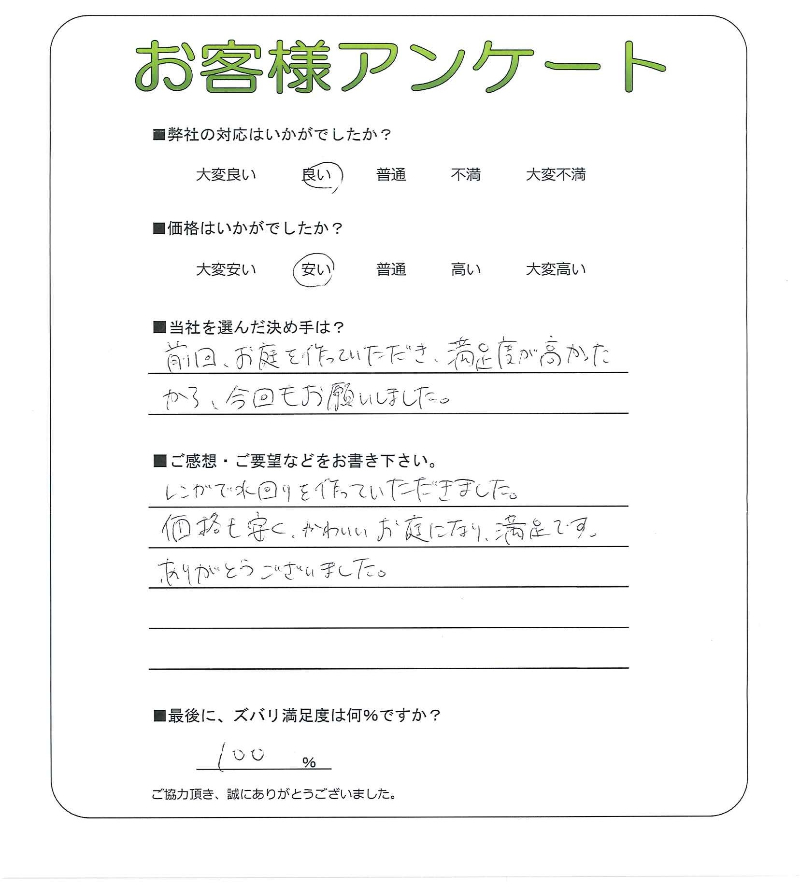 お客様アンケート
■弊社の対応はいかがでしたか？
大変良い 良い 普通 不満 大変不満
■価格はいかがでしたか？
大変安い 安い 普通 高い 大変高い
■当社を選んだ決め手は？
前回、お庭を作っていただき、満足度が高かった
から、今回もお願いしました。
■ご感想・ご要望などをお書き下さい。
レンガで水回りを作っていただきました。
価格も安く、かわいいお庭になり、満足です。
ありがとうございました。
■最後に、ズバリ満足度は何%ですか？
100 %
ご協力頂き、誠にありがとうございました。